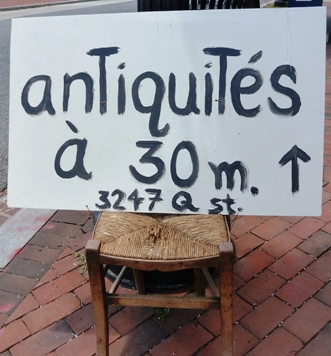 anTiquiTés
à 30 m. ↑
3247 Q st.